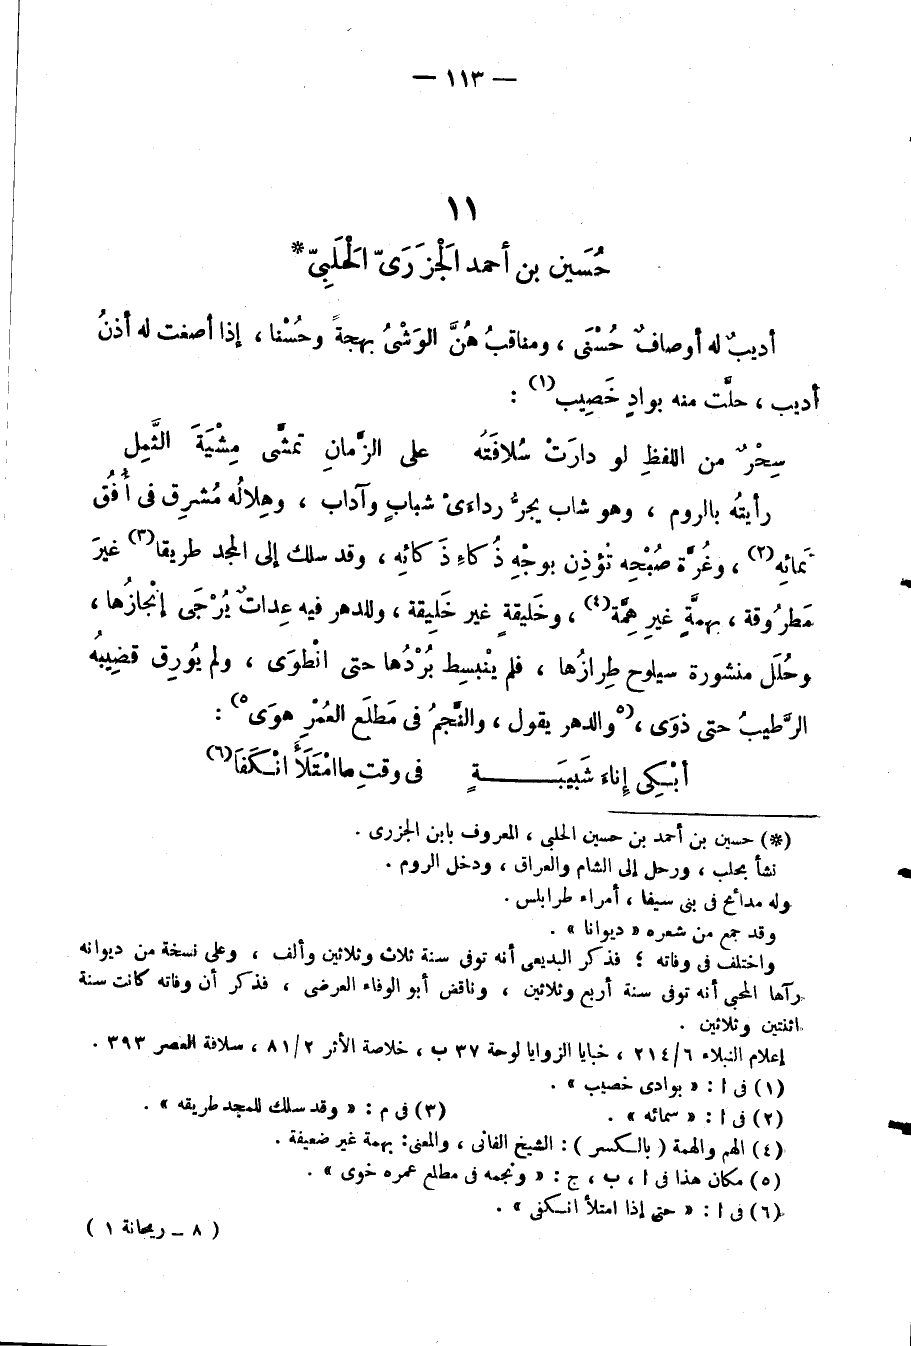 — ١١٣ —
١١
حُسَين بن أحمد الَجْزَرَىّ الَحْلَبِىّ*
أديبٌ له أوصافٌ حُسْنَى ، ومناقبُ هُنَّ الوَشْىُ بهجةً وحُسْنا ، إذا أصغت له أذنُ
أديب ، حلَّت منه بوادٍ خَصِيب(١) :
سِحْرٌ من اللفظِ لو دارَتْ سُلافَتُه على الزَّمانِ تمشَّى مِشْيَةَ الثَّمِل
رأيتُه بالروم ، وهو شاب يجرُّ رداءَىْ شبابٍ وآداب ، وهِلالُه مُشرِق فى أُفُق
تَمائِه(٢) ، وغُرَّة صُبْحِه تُؤذِن بوجْهِ ذُكاءِ ذَكائِه ، وقد سلك إلى المجد طريقا(٣) غيرَ
مَطرُوقة ، بهمَّةٍ غيرِ هِمَّة(٤) ، وخَليقةٍ غير خَلِيقة ، وللدهر فيه عِداتٌ يُرْجَى إنْجازُها ،
وحُلَل منشورة سيلوح طِرازُها ، فلم يَنْبسِط بُرْدُها حتى انْطوَى ، ولم يُورِق قضِيبُه
الرَّطيبُ حتى ذوَى ، (٥والدهر يقول ، والنَّجمُ فى مَطلَع العُمْرِ هوَى٥) :
أبْكِى إِناءَ شَبِيبَةٍ فى وقتِ ما امْتَلَأَ انْكَفَا(٦)
(*) حسين بن أحمد بن حسين الحلبى ، المعروف بابن الجزرى .
نشأ بحلب ، ورحل إلى الشام والعراق ، ودخل الروم .
وله مدائح فى بنى سيفا ، أمراء طرابلس .
وقد جمع من شعره « ديوانا » .
واختلف فى وفاته ؛ فذكر البديعى أنه توفى سنة ثلاث وثلاثين وألف ، وعلى نسخة من ديوانه
رآها المحبى أنه توفى سنة أربع وثلاثين ، وناقض أبو الوفاء العرضى ، فذكر أن وفاته كانت سنة
اثنتين وثلاثين .
إعلام النبلاء ٢١٤/٦ ، خبايا الزوايا لوحة ٣٧ ب ، خلاصة الأثر ٨١/٢ ، سلافة العصر ٣٩٣ .
(١) فى ا : « بوادى خصيب » .
(٢) فى ا : « سمائه » . (٣) فى م : « وقد سلك للمجد طريقه » .
(٤) الهم والهمة ( بالكسر ) : الشيخ الفانى ، والمعنى : بهمة غير ضعيفة .
(٥) مكان هذا فى ا ، ب ، ج : « ونجمه فى مطلع عمره خوى » .
(٦) فى ا : « حتى إذا امتلأ انكفى » .
( ٨ _ ريحانة ١ )